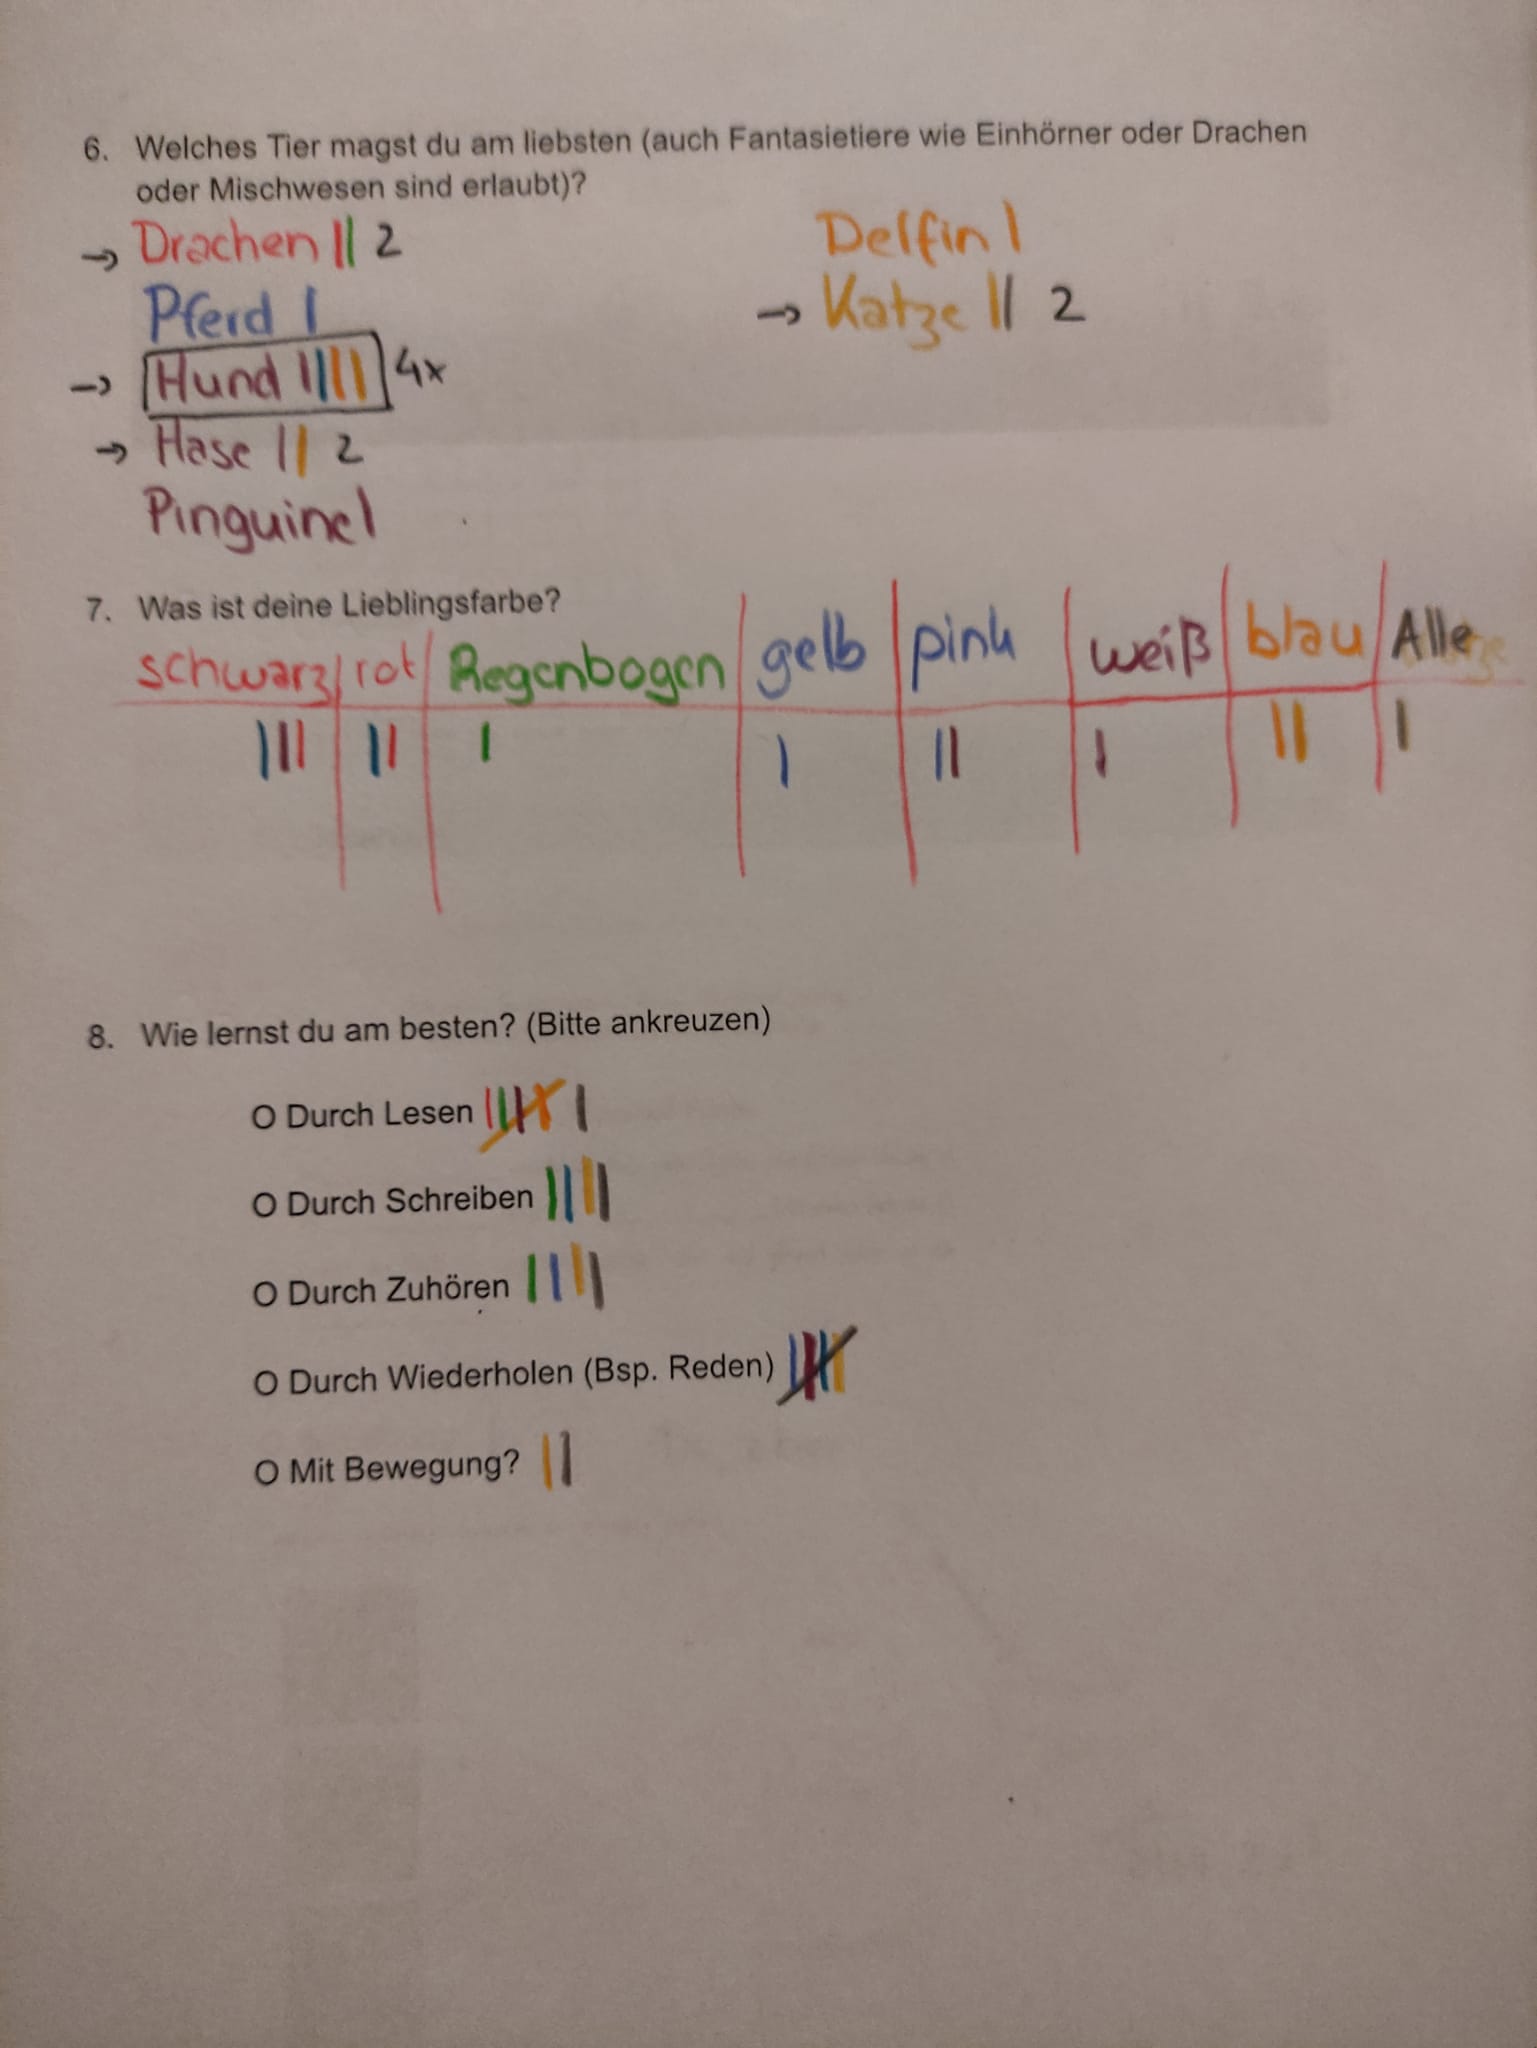 6. Welches Tier magst du am liebsten (auch Fantasietiere wie Einhörner oder Drachen
oder Mischwesen sind erlaubt)?
→ Drachen || 2
Pferd |
→ Hund |||| 4x
→ Hase || 2
Pinguine |
Delfin |
→ Katze || 2
7. Was ist deine Lieblingsfarbe?
schwarz | rot | Regenbogen | gelb | pink | weiß | blau | Alle
||| || | | || | || |
8. Wie lernst du am besten? (Bitte ankreuzen)
O Durch Lesen |||| |
O Durch Schreiben ||||
O Durch Zuhören ||||
O Durch Wiederholen (Bsp. Reden) ||||
O Mit Bewegung? ||